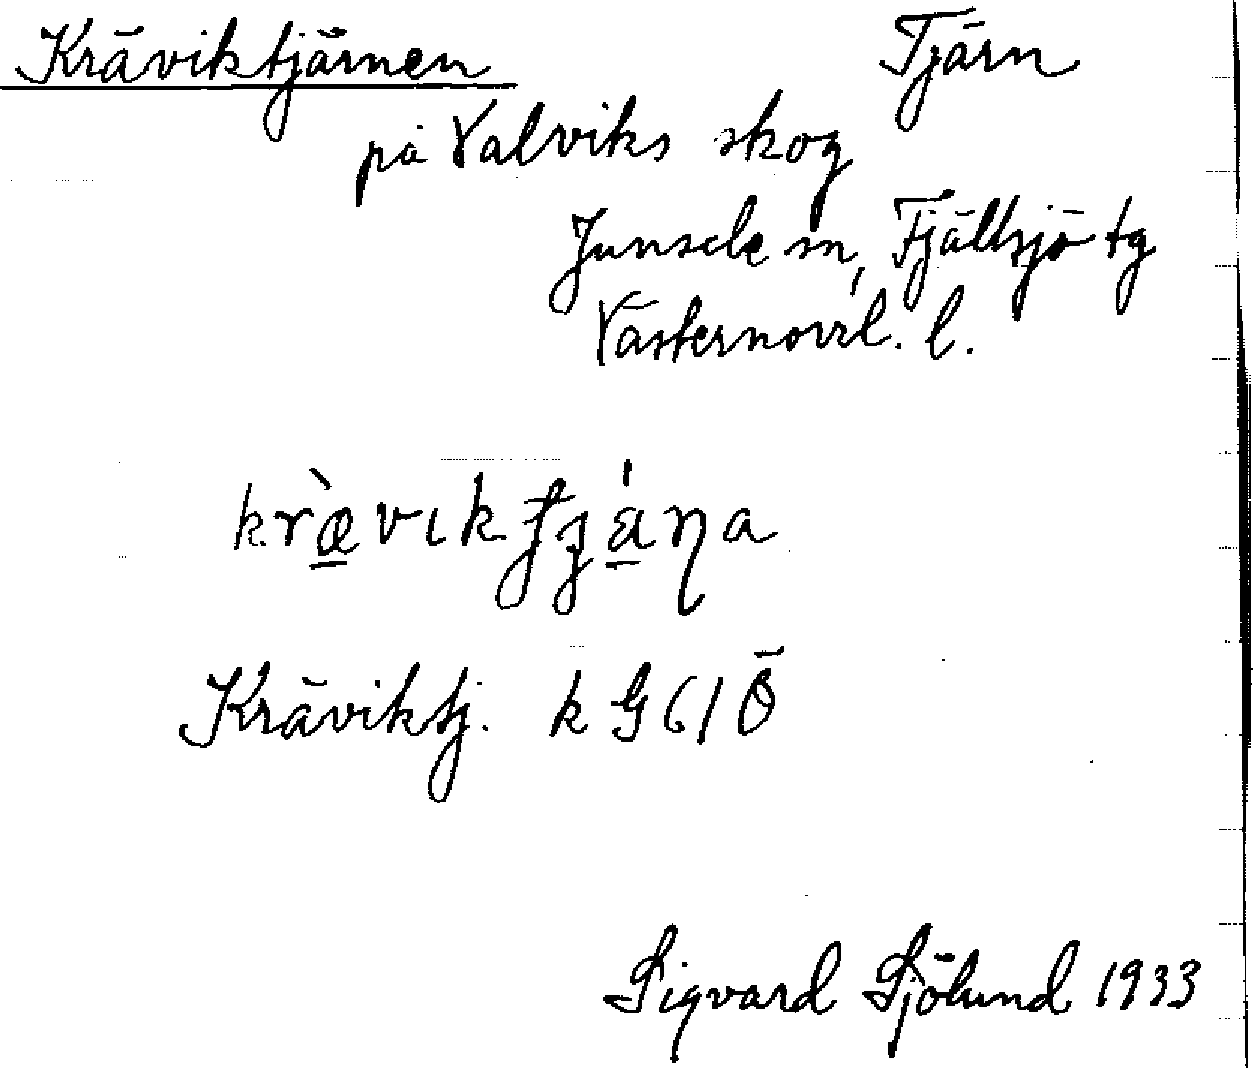 Kräviktjärnen Tjärn
på Valviks skog
Junsele sn, Fjällsjö tg
Västernorrl. l.
Kräviktj. k G 61 Ö
Sigvard Sjölund 1933